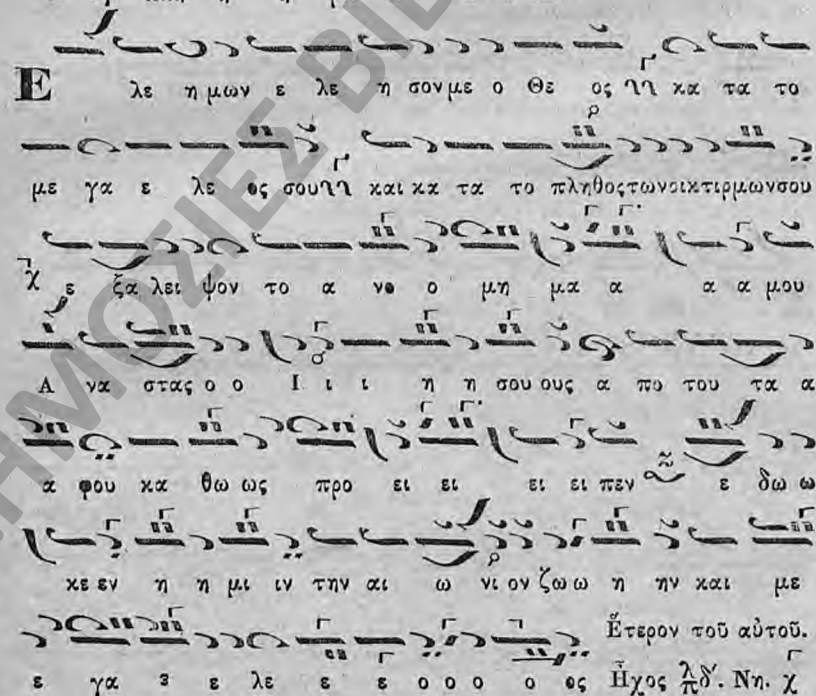 Ε λε η μων ε λε η σον με ο Θε ος κα τα το
με γα ε λε ος σου και κα τα το πληθοςτωνοικτιρμωνσου
ε ξα λει ψον το α νο ο μη μα α α α μου
Α να στας ο ο Ι ι ι η η σου ους α πο του τα α
α φου κα θω ως προ ει ει ει ει πεν ε δω ω
κε εν η η μι ιν την αι ω νι ον ζω ω η ην και με
ε γα ε λε ε ε ο ο ο ο ος
Ἕτερον τοῦ αὐτοῦ.
Ἦχος λπδ'. Νη.